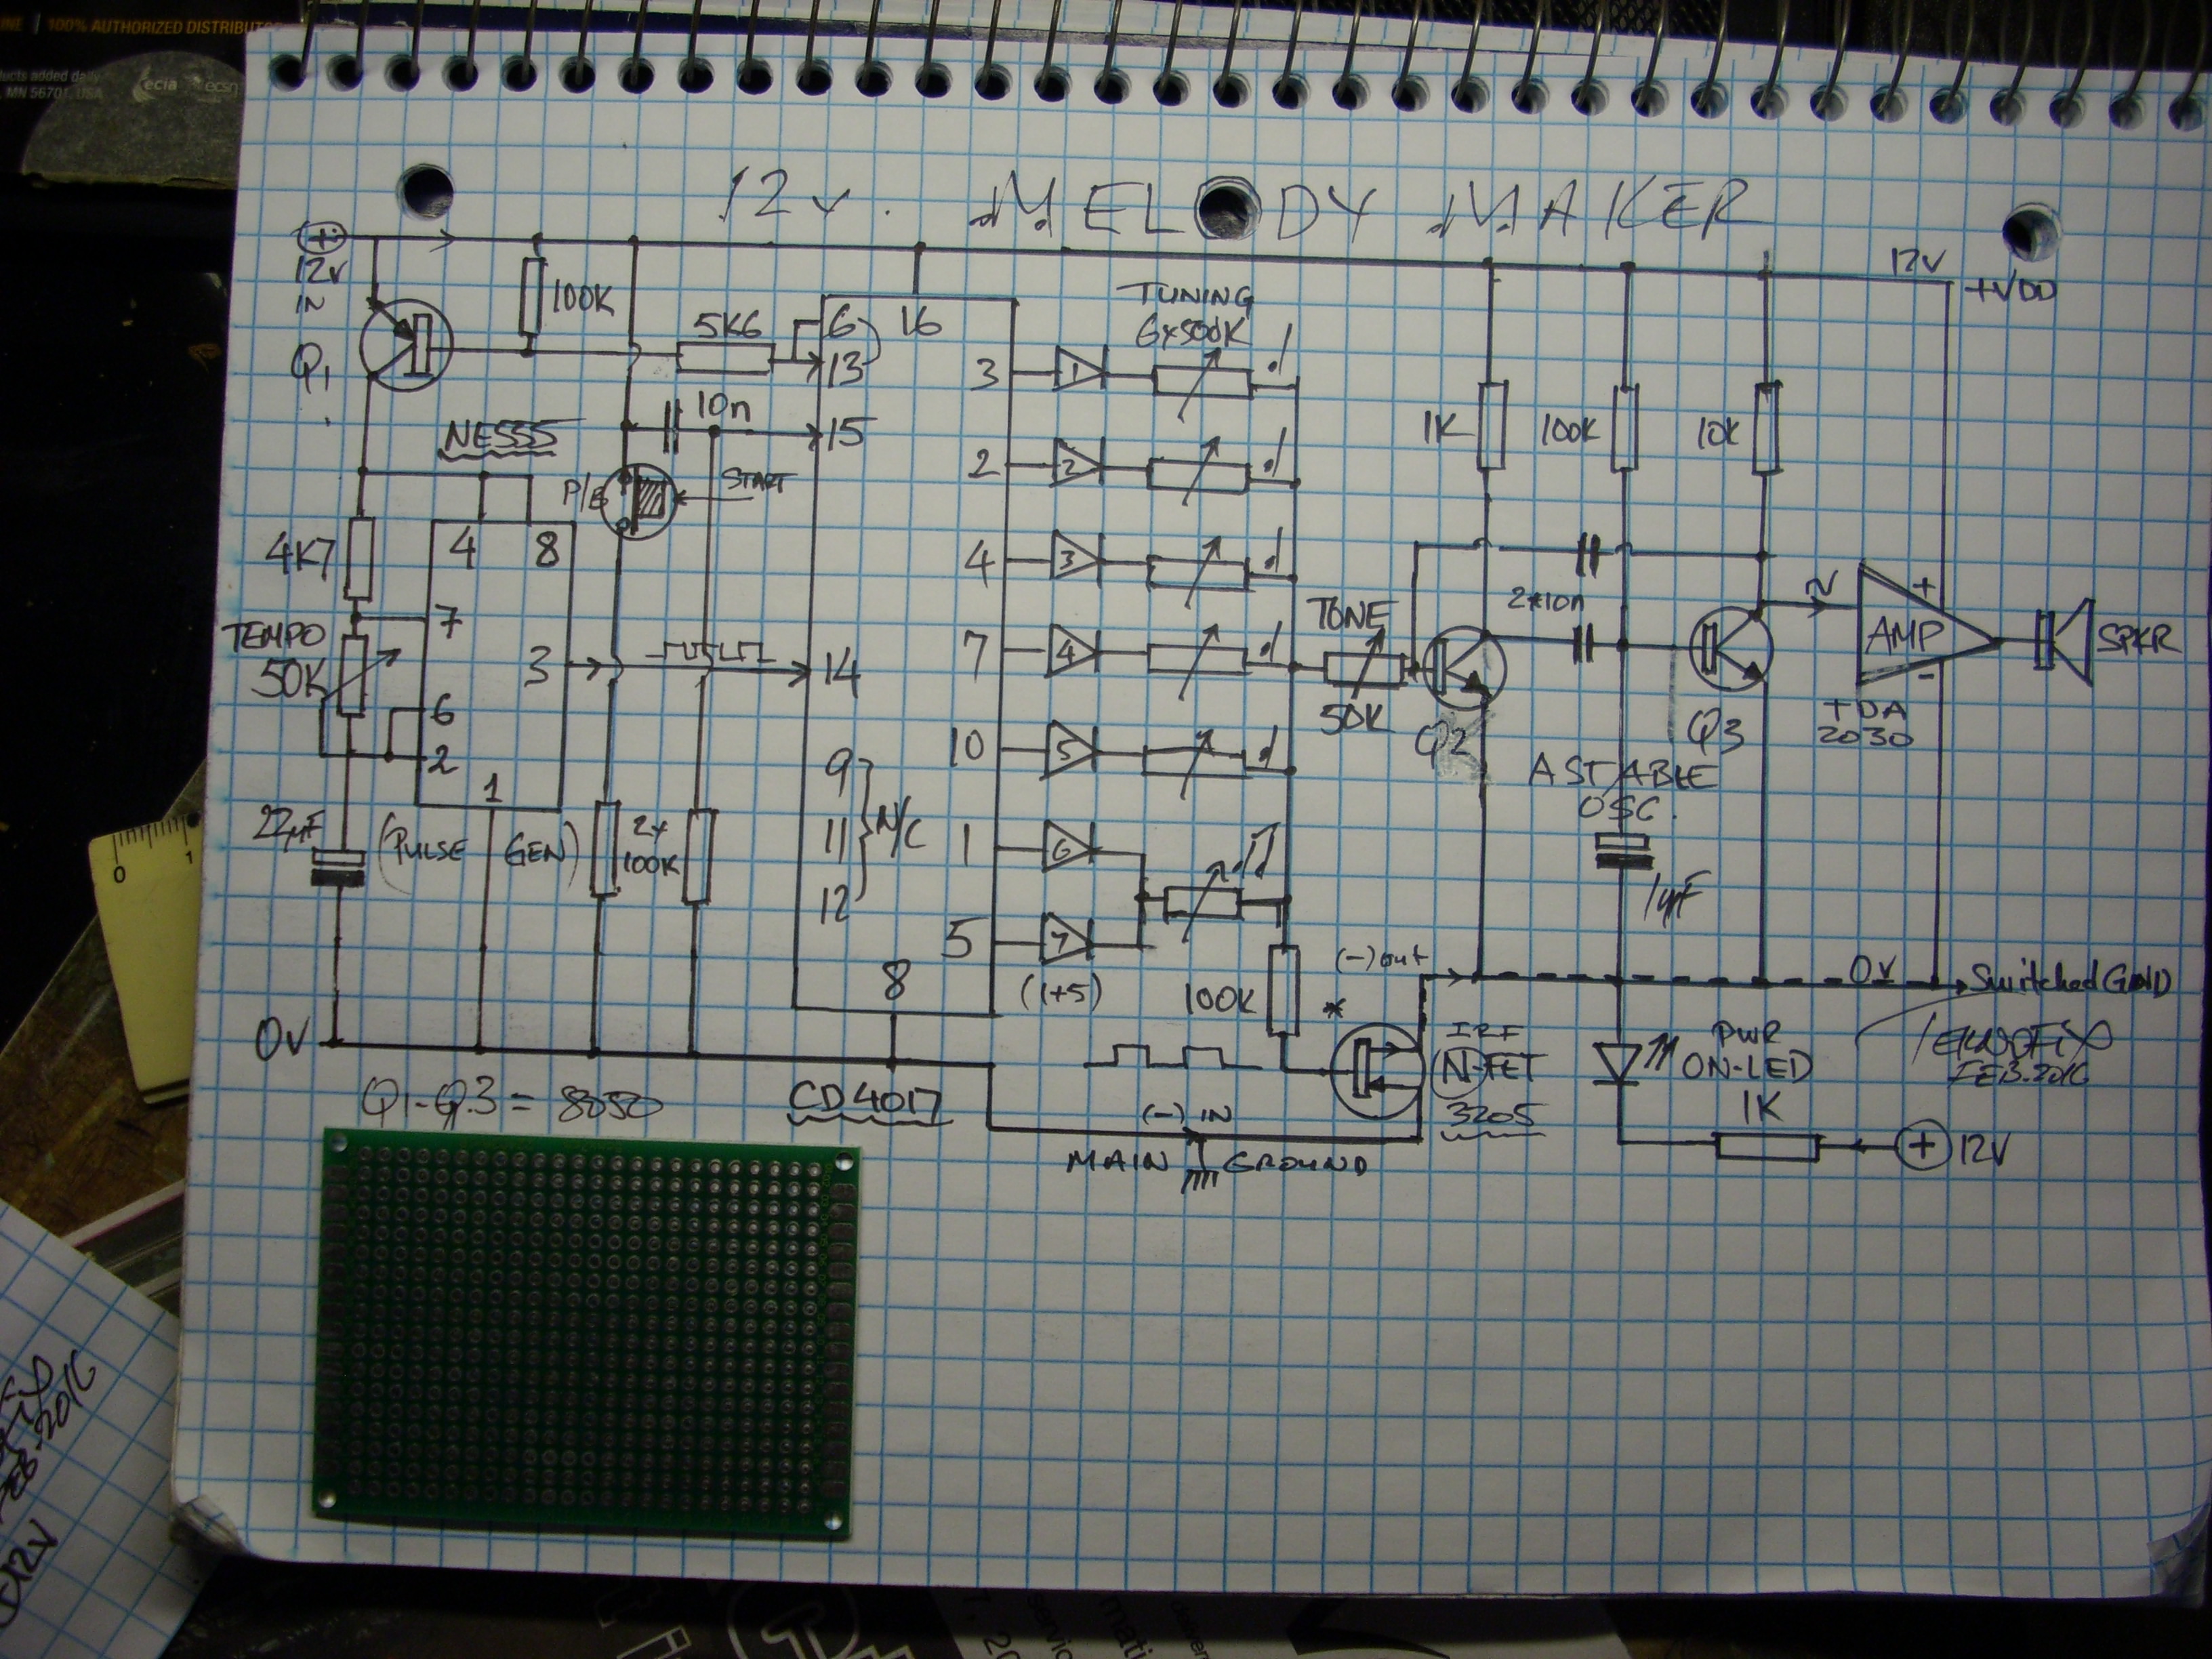 NE | 100% AUTHORIZED DISTRIBUTO
ucts added daily
MN 56701, USA
ecia
ecsn
12v. MELODY MAKER
+
12v
IN
Q1
100K
5K6
6
13
16
10n
15
NE555
P/B
START
4K7
4 8
7
3
14
TEMPO
50K
6
2
1
22µF
(PULSE GEN)
2x
100K
9
11
12
N/C
8
0v
Q1-Q3 = 8050
CD4017
TUNING
6x500K
3 1
2 2
4 3
7 4
10 5
1 6
5 7
(1+5)
TONE
50K
1K
100K
10K
12V
+VDD
2x10n
Q2
Q3
ASTABLE
OSC.
1µF
+
AMP
-
TDA
2030
SPKR
(-) out
100K
*
0v
Switched GND
IRF
N-FET
3205
PWR
ON-LED
1K
+ 12V
TEKNOFIX
FEB.2016
(-) IN
MAIN GROUND
0 1
FEB.2016
12V